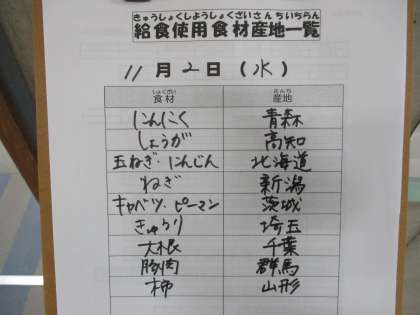 きゅうしょくしようしょくざいさんちいちらん
給食使用食材産地一覧
11月2日（水）
しょくざい さんち
食材 産地
にんにく 青森
しょうが 高知
玉ねぎ・にんじん 北海道
ねぎ 新潟
キャベツ・ピーマン 茨城
きゅうり 埼玉
大根 千葉
豚肉 群馬
柿 山形